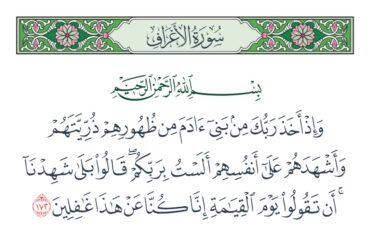 سُورَةُ الأَعْرَافِ
بِسْمِ اللَّهِ الرَّحْمَٰنِ الرَّحِيمِ
وَإِذْ أَخَذَ رَبُّكَ مِنۢ بَنِىٓ ءَادَمَ مِن ظُهُورِهِمْ ذُرِّيَّتَهُمْ
وَأَشْهَدَهُمْ عَلَىٰٓ أَنفُسِهِمْ أَلَسْتُ بِرَبِّكُمْ ۖ قَالُوا۟ بَلَىٰ شَهِدْنَآ
ۛ أَن تَقُولُوا۟ يَوْمَ ٱلْقِيَٰمَةِ إِنَّا كُنَّا عَنْ هَٰذَا غَٰفِلِينَ ١٧٢